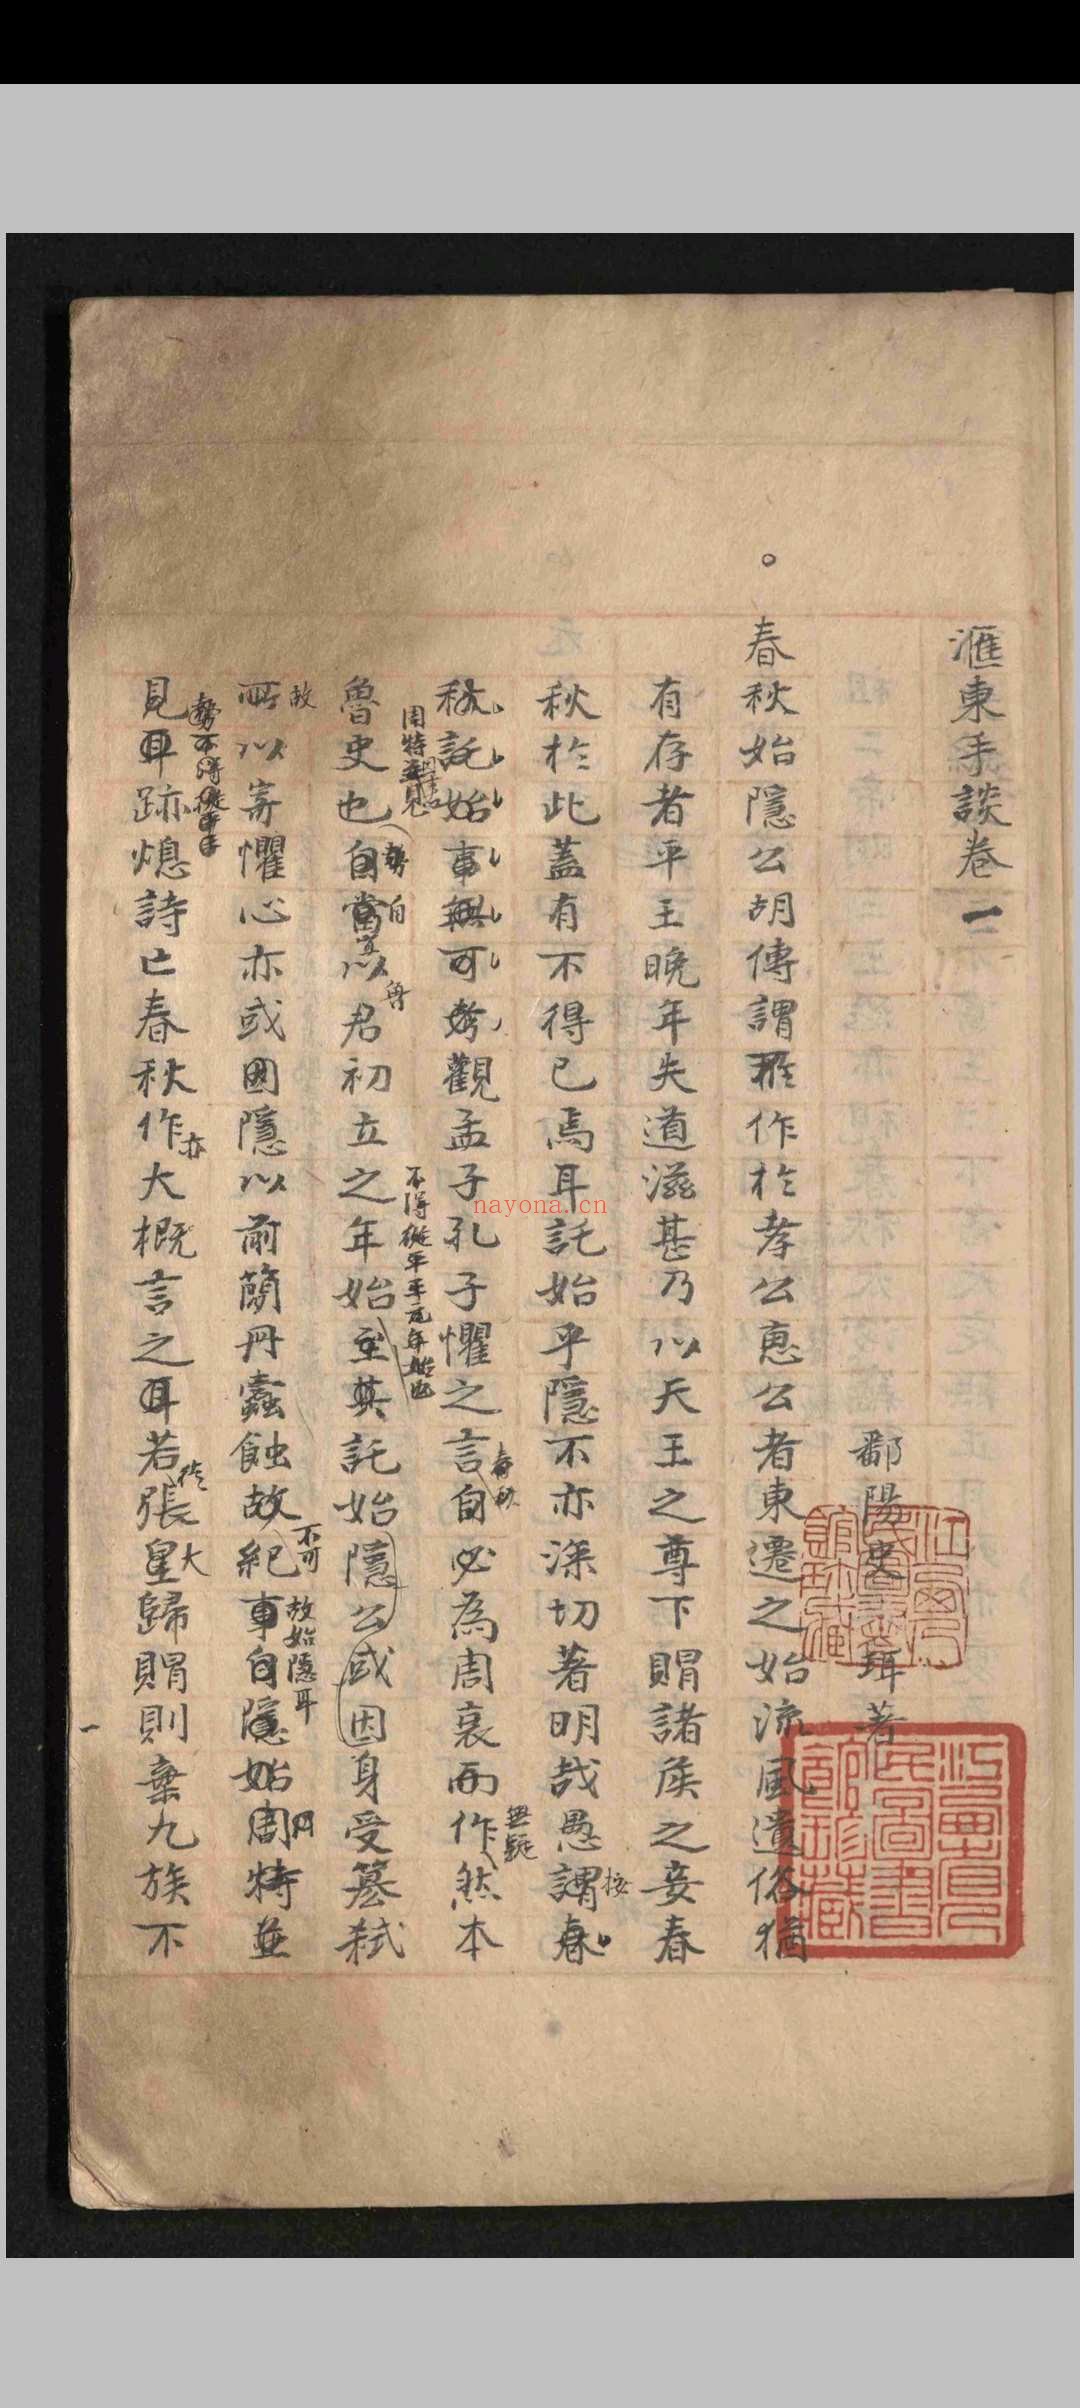 滙東手談卷一
鄱陽史珥著
春秋始隱公胡傳謂雅作於孝公惠公者東遷之始流風遺俗猶
有存者平王晚年失道滋甚乃以天王之尊下賵諸侯之妾春
秋於此蓋有不得已焉耳託始乎隱不亦深切著明哉愚謂春
按
秋託始事無可考觀孟子孔子懼之言自必為周衰而作然本
春秋
無疑
魯史也自當以君初立之年始至其託始隱公或因身受篡弒
勢自
魯
不得從平王元年始也
所以寄懼心亦或因隱以前簡冊蠹蝕故紀事自隱始周特並
故
不可
故始隱耳
見耳跡熄詩亡春秋作大概言之耳若張皇歸賵則棄九族不
亦
從
大
一
江西省立圖書館珍藏
nayona.cn